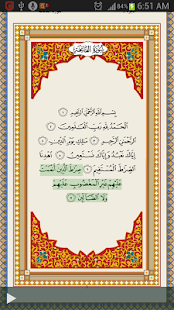 6:51 AM
سُورَةُ الفَاتِحَةِ
بِسْمِ اللَّهِ الرَّحْمَٰنِ الرَّحِيمِ ١
الْحَمْدُ لِلَّهِ رَبِّ الْعَالَمِينَ ٢
الرَّحْمَٰنِ الرَّحِيمِ ٣ مَالِكِ يَوْمِ الدِّينِ ٤
إِيَّاكَ نَعْبُدُ وَإِيَّاكَ نَسْتَعِينُ ٥ اهْدِنَا
الصِّرَاطَ الْمُسْتَقِيمَ ٦ صِرَاطَ الَّذِينَ أَنْعَمْتَ
عَلَيْهِمْ غَيْرِ الْمَغْضُوبِ عَلَيْهِمْ
وَلَا الضَّالِّينَ ٧